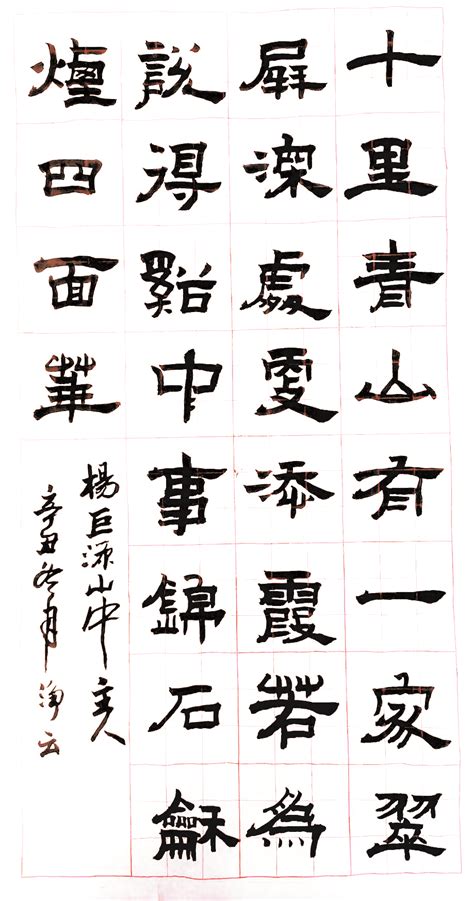 十里青山有一家翠
屏深處更添霞若為
說得谿中事錦石龢
煙四面華
楊巨源山中主人
辛丑冬月 淨云